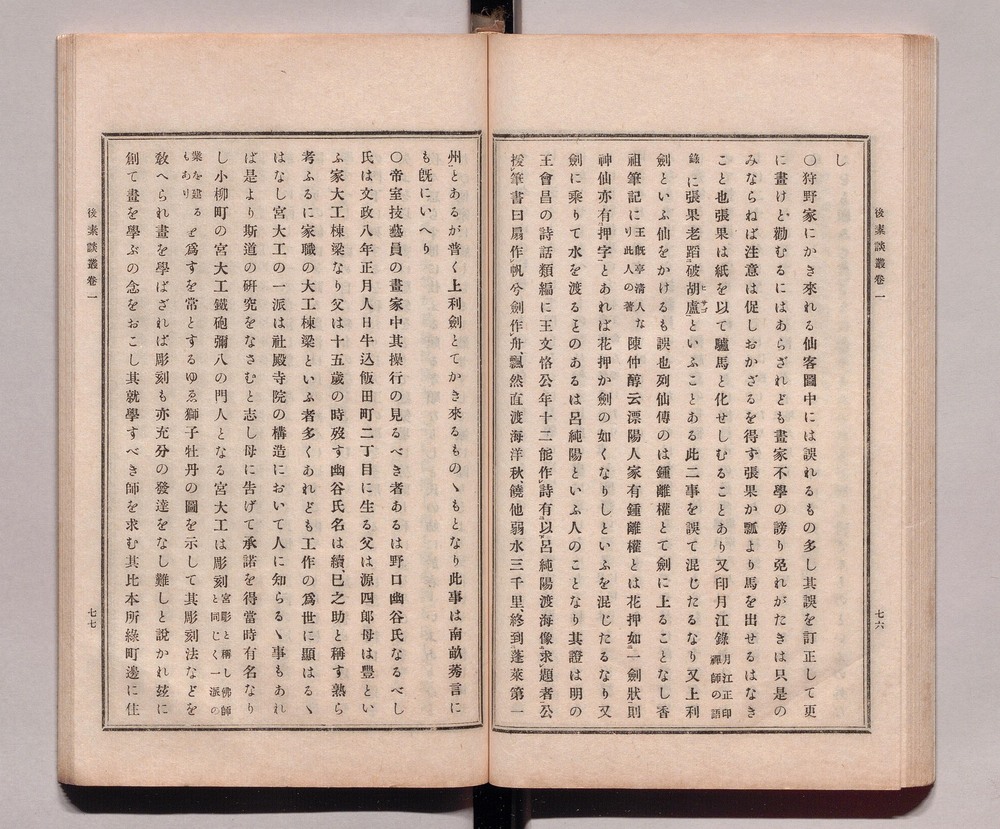 後素談叢卷一
七六
し
〇狩野家にかき來れる仙客圖中には誤れるもの多し其誤を訂正して更
に畫けと勸むるにはあらざれども畫家不學の謗り免れがたきは只是の
みならねば注意は促しおかざるを得ず張果か瓢より馬を出せるはなき
こと也張果は紙を以て驢馬と化せしむることあり又印月江錄月江正印禪師の語
錄に張果老蹈破胡盧ヒサゴといふことある此二事を誤て混じたるなり又上利
劍といふ仙をかけるも誤也列仙傳のは鍾離權とて劍に上ることなし香
祖筆記に王旣亭淸人なり此人の著陳仲醇云漂陽人家有鍾離權とは花押如一劍狀則
神仙亦有押字とあれば花押か劍の如くなりしといふを混じたるなり又
劍に乘りて水を渡るとのあるは呂純陽といふ人のことなり其證は明の
王會昌の詩話類編に王文恪公年十二能作詩有以呂純陽渡海像求題者公
援筆書曰扇作帆兮劍作舟、飄然直渡海洋秋、饒他弱水三千里、終到蓬萊第一
州とあるが普く上利劍とてかき來るものゝもとなり此事は南畝莠言に
も旣にいへり
〇帝室技藝員の畫家中其操行の見るべき者あるは野口幽谷氏なるべし
氏は文政八年正月人日牛込飯田町二丁目に生る父は源四郞母は豐とい
ふ家大工棟梁なり父は十五歲の時歿す幽谷氏名は續、巳之助と稱す熟ら
考ふるに家職の大工棟梁といふ者多くあれども工作の爲世に顯はるゝ
はなし宮大工の一派は社殿寺院の構造において人に知らるゝ事もあれ
ば是より斯道の硏究をなさむと志し母に吿げて承諾を得當時有名なり
し小柳町の宮大工鐵砲彌八の門人となる宮大工は彫刻宮彫と稱し佛師と同じく一派の
業を建るもありを爲すを常とするゆゑ獅子牡丹の圖を示して其彫刻法などを
敎へられ畫を學ばざれば彫刻も亦充分の發達をなし難しと說かれ玆に
創て畫を學ぶの念をおこし其就學すべき師を求む其比本所綠町邊に住
後素談叢卷一
七七